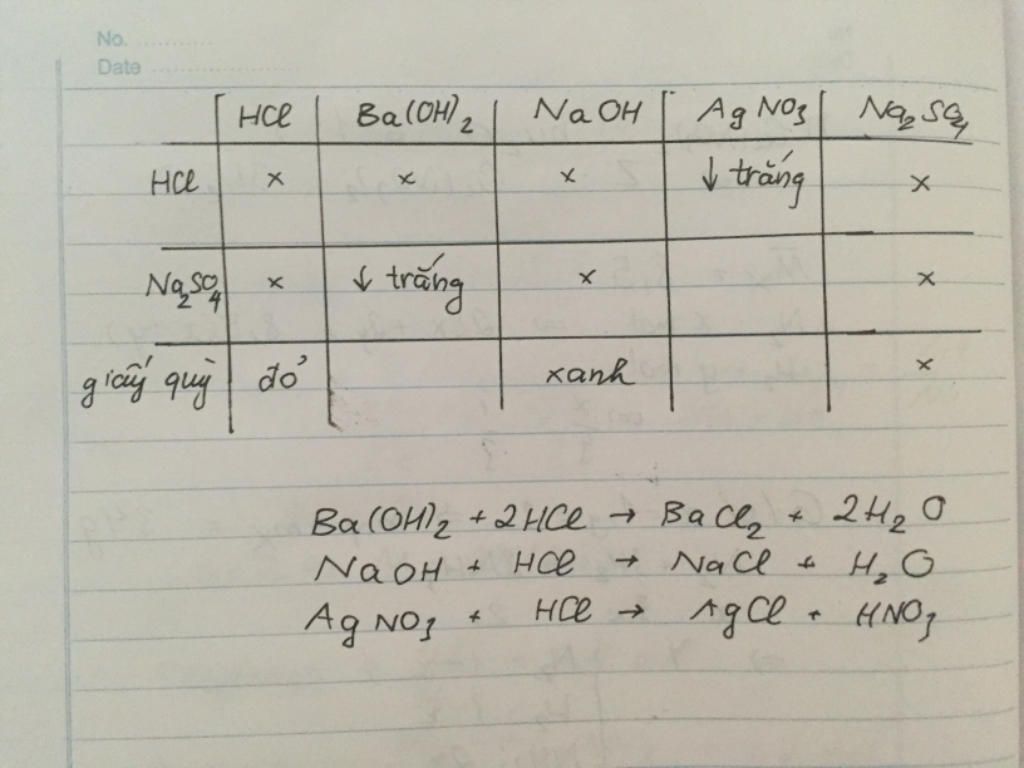 No. ..............
Date ..........................
HCl Ba(OH)₂ NaOH AgNO₃ Na₂SO₄
HCl x x x ↓ trắng x
Na₂SO₄ x ↓ trắng x x
giấy quỳ đỏ xanh x
Ba(OH)₂ + 2HCl → BaCl₂ + 2H₂O
NaOH + HCl → NaCl + H₂O
AgNO₃ + HCl → AgCl + HNO₃